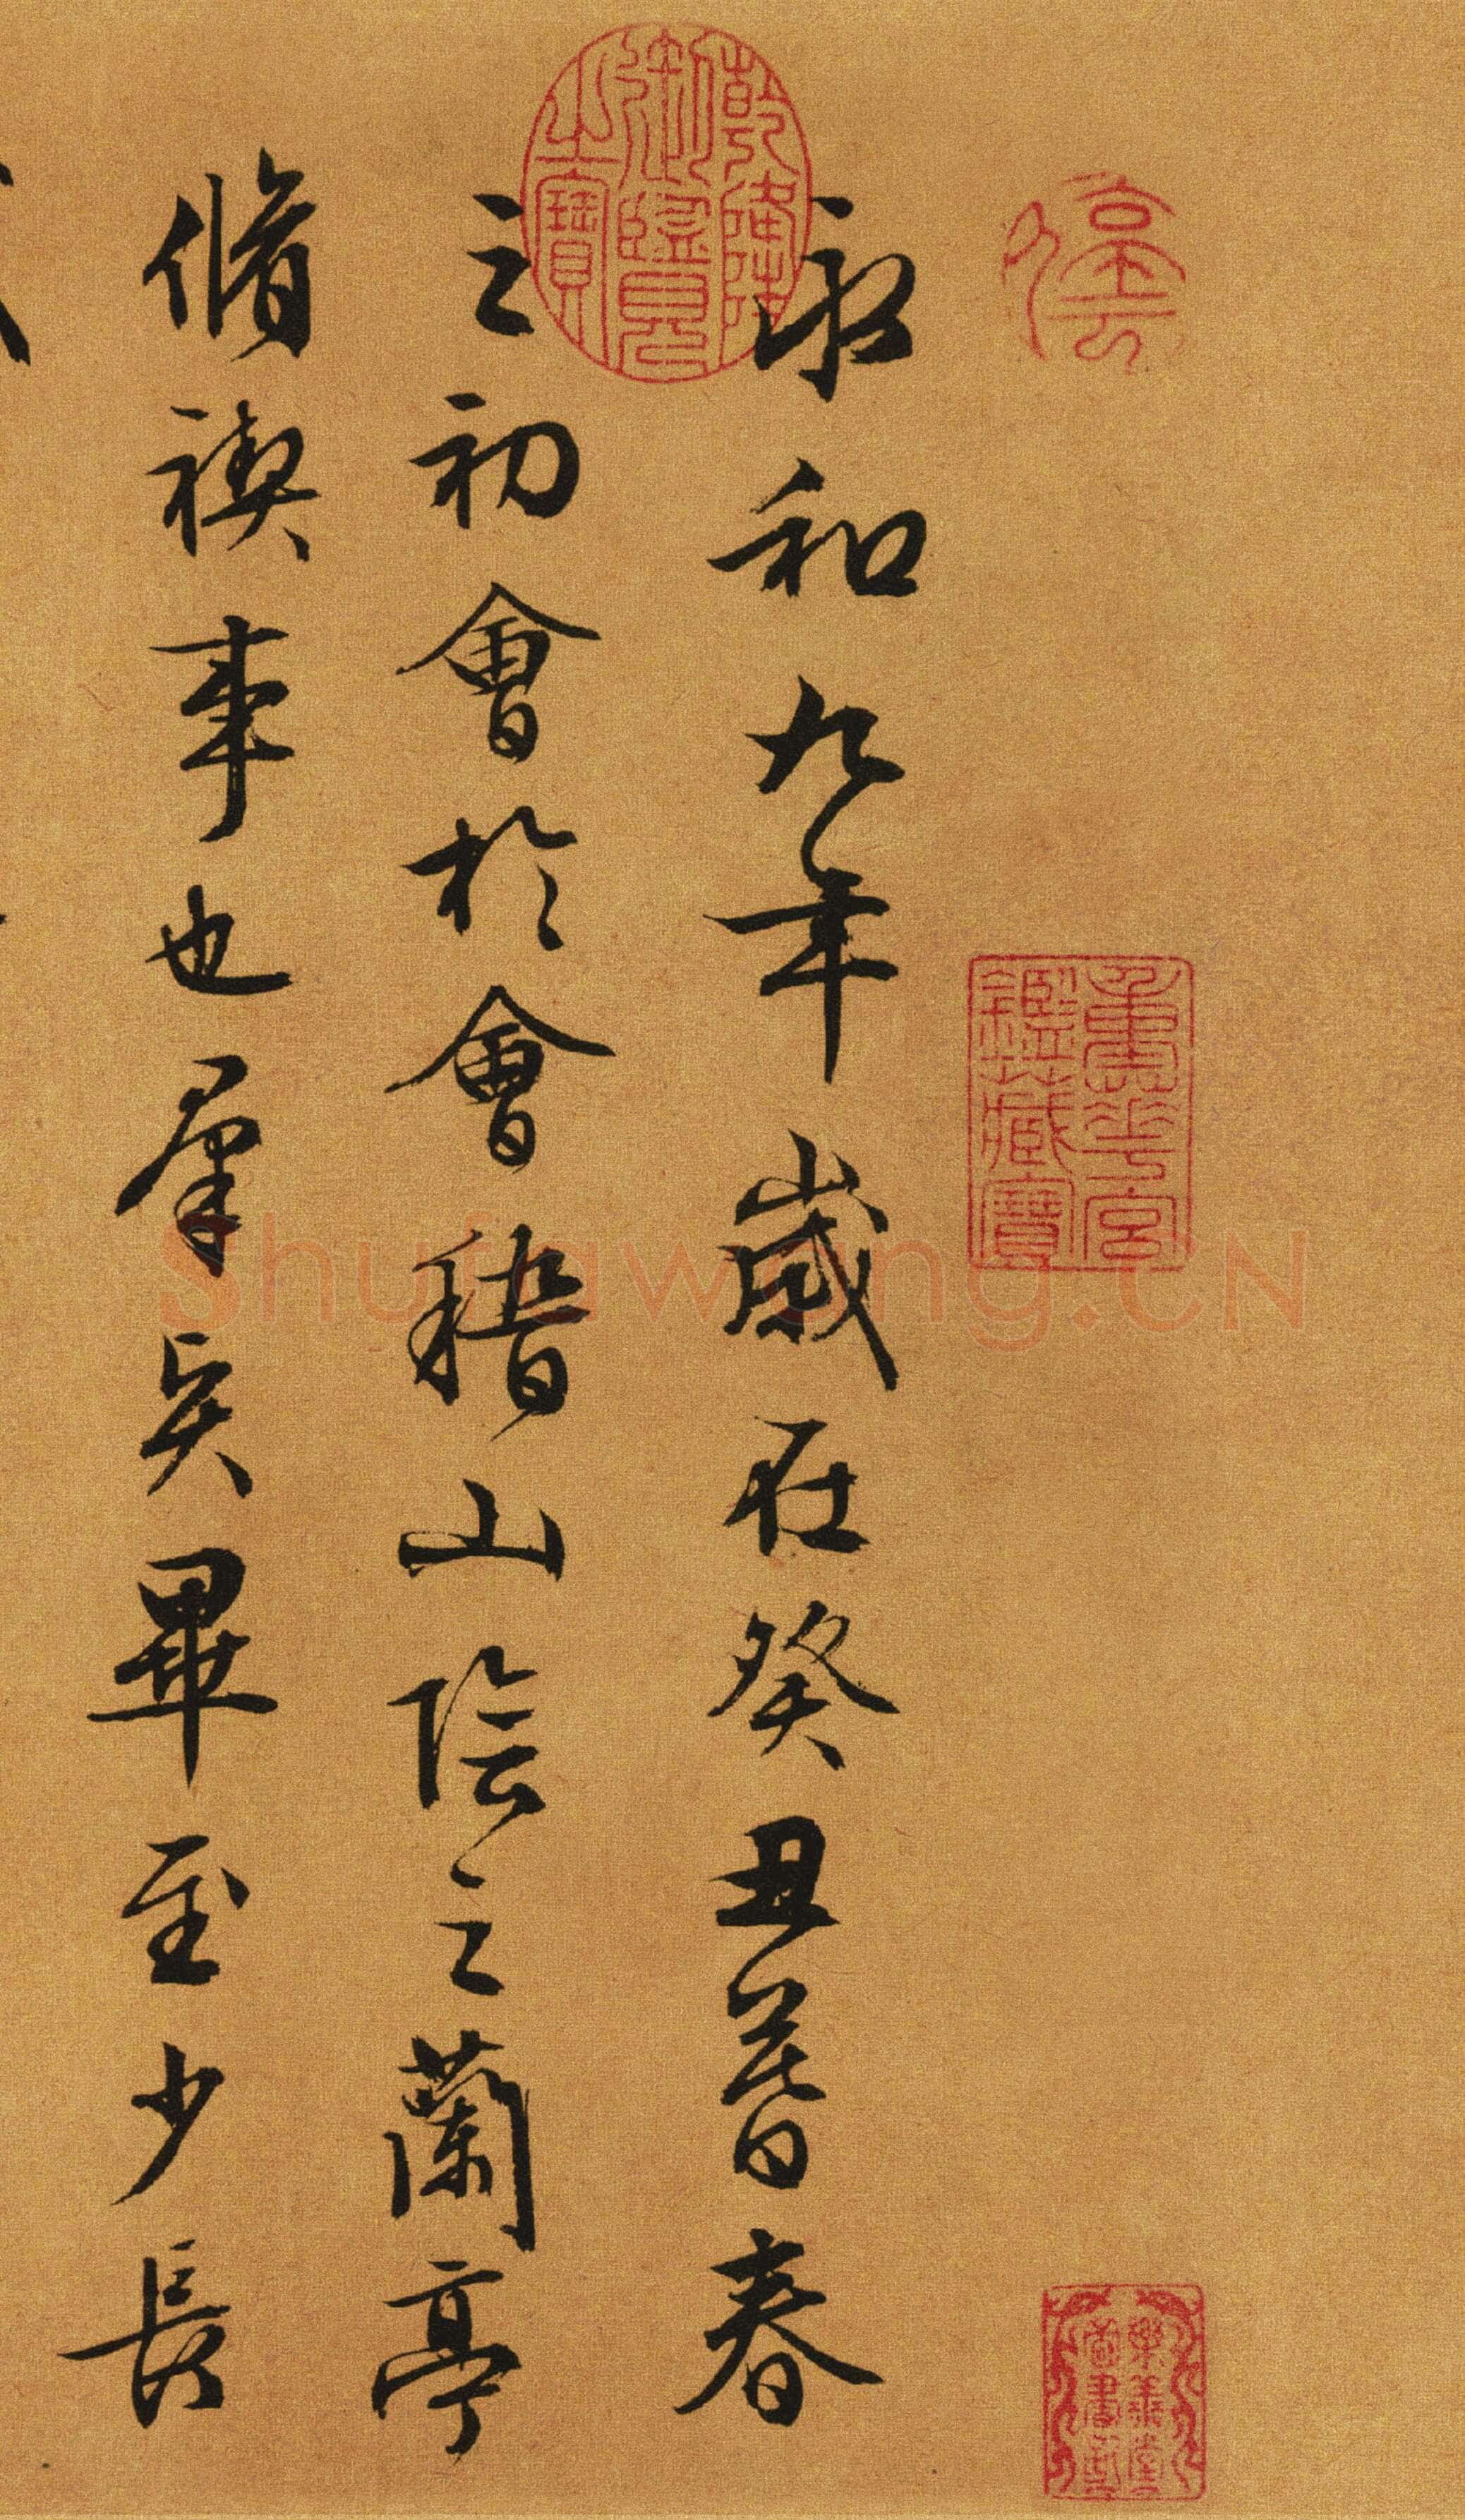 停雲
重華宮
鑑藏寶
樂善堂
圖書記
永和九年歲在癸丑暮春
乾隆
御覽
之寶
之初會於會稽山陰之蘭亭
脩禊事也羣賢畢至少長
Shufawang.CN